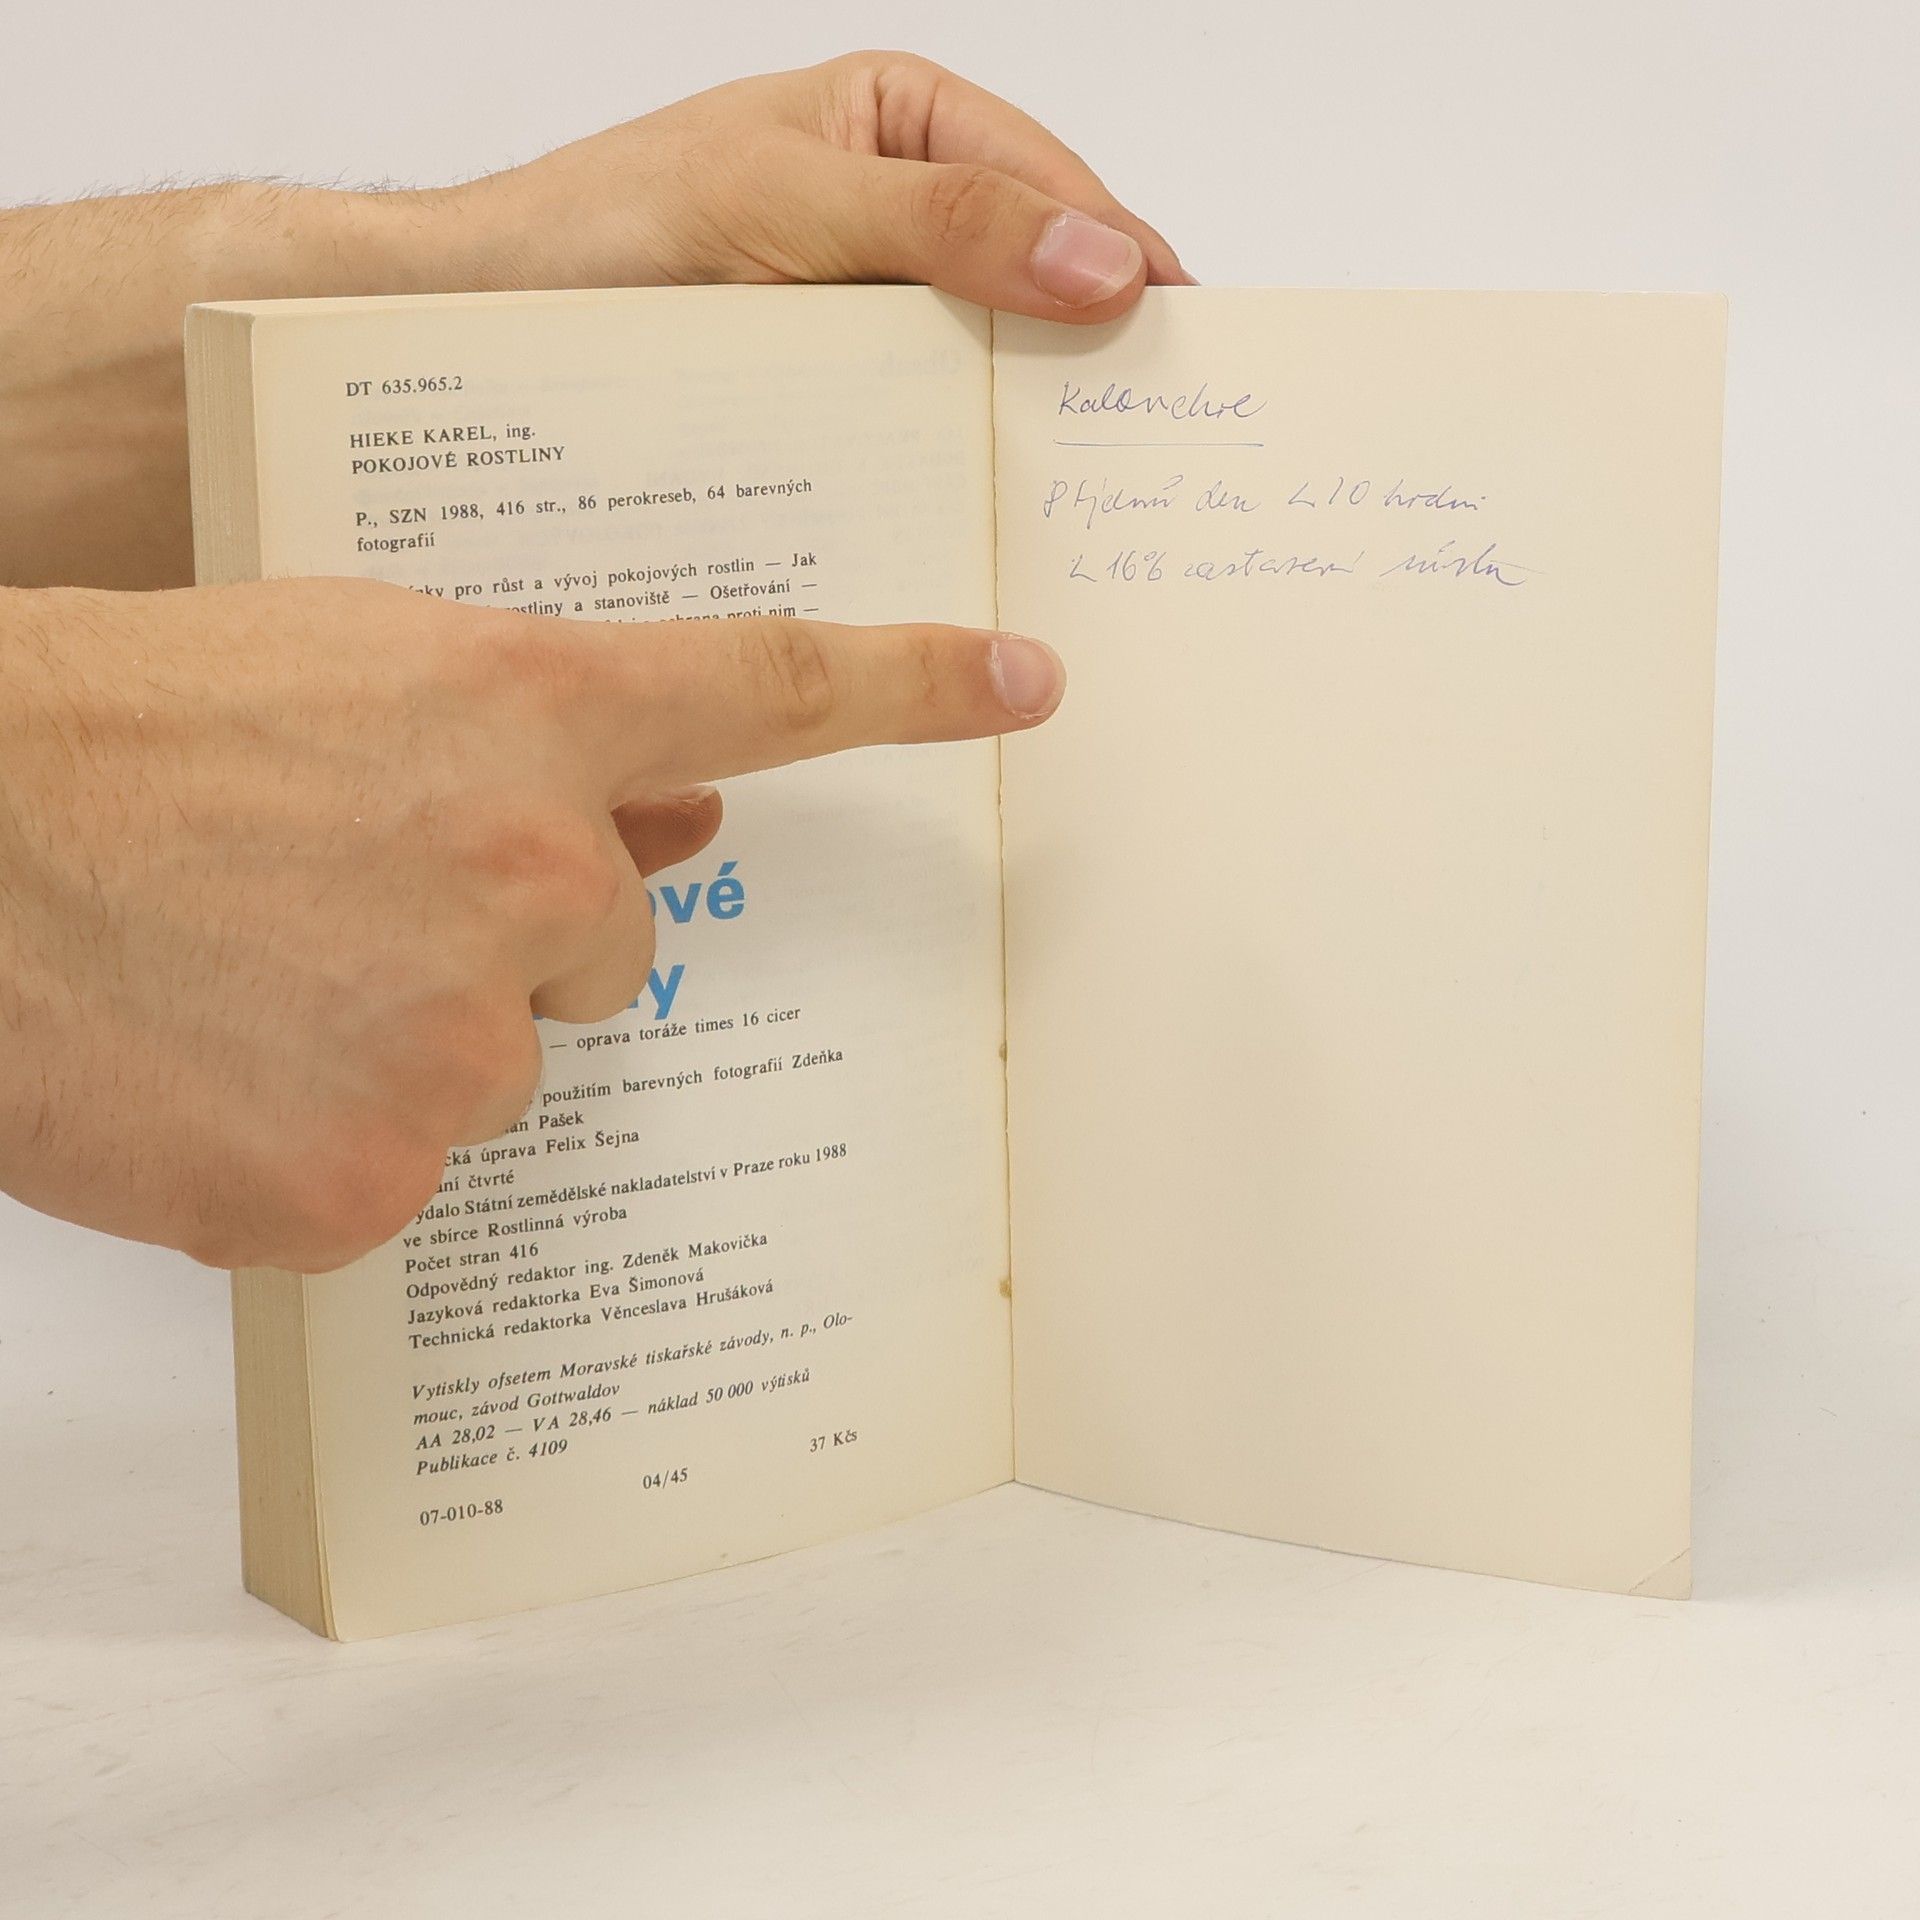 DT 635.965.2
HIEKE KAREL, ing.
POKOJOVÉ ROSTLINY
P., SZN 1988, 416 str., 86 perokreseb, 64 barevných
fotografií
pro růst a vývoj pokojových rostlin — Jak
a stanoviště — Ošetřování —
ochrana proti nim —
ové
y
— oprava toráže times 16 cicer
použitím barevných fotografií Zdeňka
Pašek
úprava Felix Šejna
čtvrté
Státní zemědělské nakladatelství v Praze roku 1988
ve sbírce Rostlinná výroba
Počet stran 416
Odpovědný redaktor ing. Zdeněk Makovička
Jazyková redaktorka Eva Šimonová
Technická redaktorka Věnceslava Hrušáková
Vytiskly ofsetem Moravské tiskařské závody, n. p., Olo-
mouc, závod Gottwaldov
AA 28,02 — VA 28,46 — náklad 50 000 výtisků
Publikace č. 4109
37 Kčs
04/45
07-010-88
Kalonchoe
8 týdnů den < 10 hodin
< 16° zastavení růstu